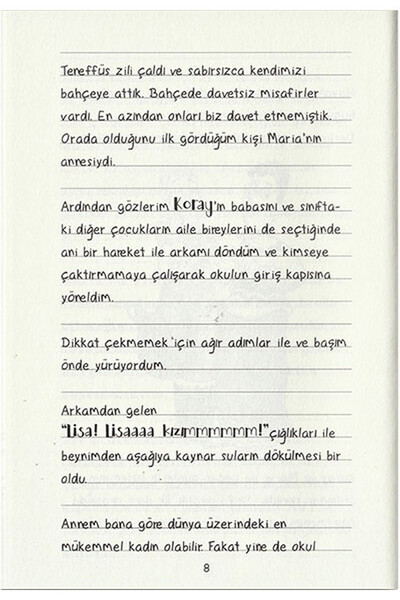 Teneffüs zili çaldı ve sabırsızca kendimizi
bahçeye attık. Bahçede davetsiz misafirler
vardı. En azından onları biz davet etmemiştik.
Orada olduğunu ilk gördüğüm kişi Maria'nın
annesiydi.
Ardından gözlerim Koray'ın babasını ve sınıfta-
ki diğer çocukların aile bireylerini de seçtiğinde
ani bir hareket ile arkamı döndüm ve kimseye
çaktırmamaya çalışarak okulun giriş kapısına
yöneldim.
Dikkat çekmemek için ağır adımlar ile ve başım
önde yürüyordum.
Arkamdan gelen
"Lisa! Lisaaaa kızımmmmmm!"çığlıkları ile
beynimden aşağıya kaynar suların dökülmesi bir
oldu.
Annem bana göre dünya üzerindeki en
mükemmel kadın olabilir. Fakat yine de okul
8